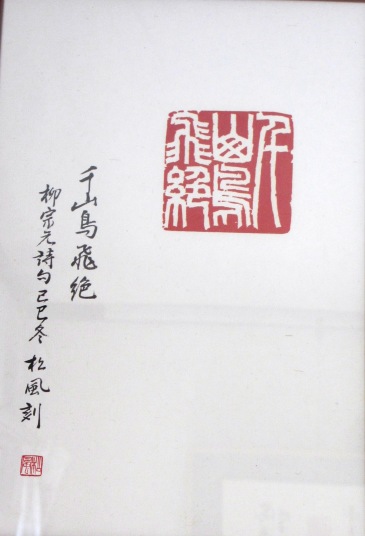 千山鳥飛絕
千山鳥飛絕
柳宗元詩句己巳冬 松風刻